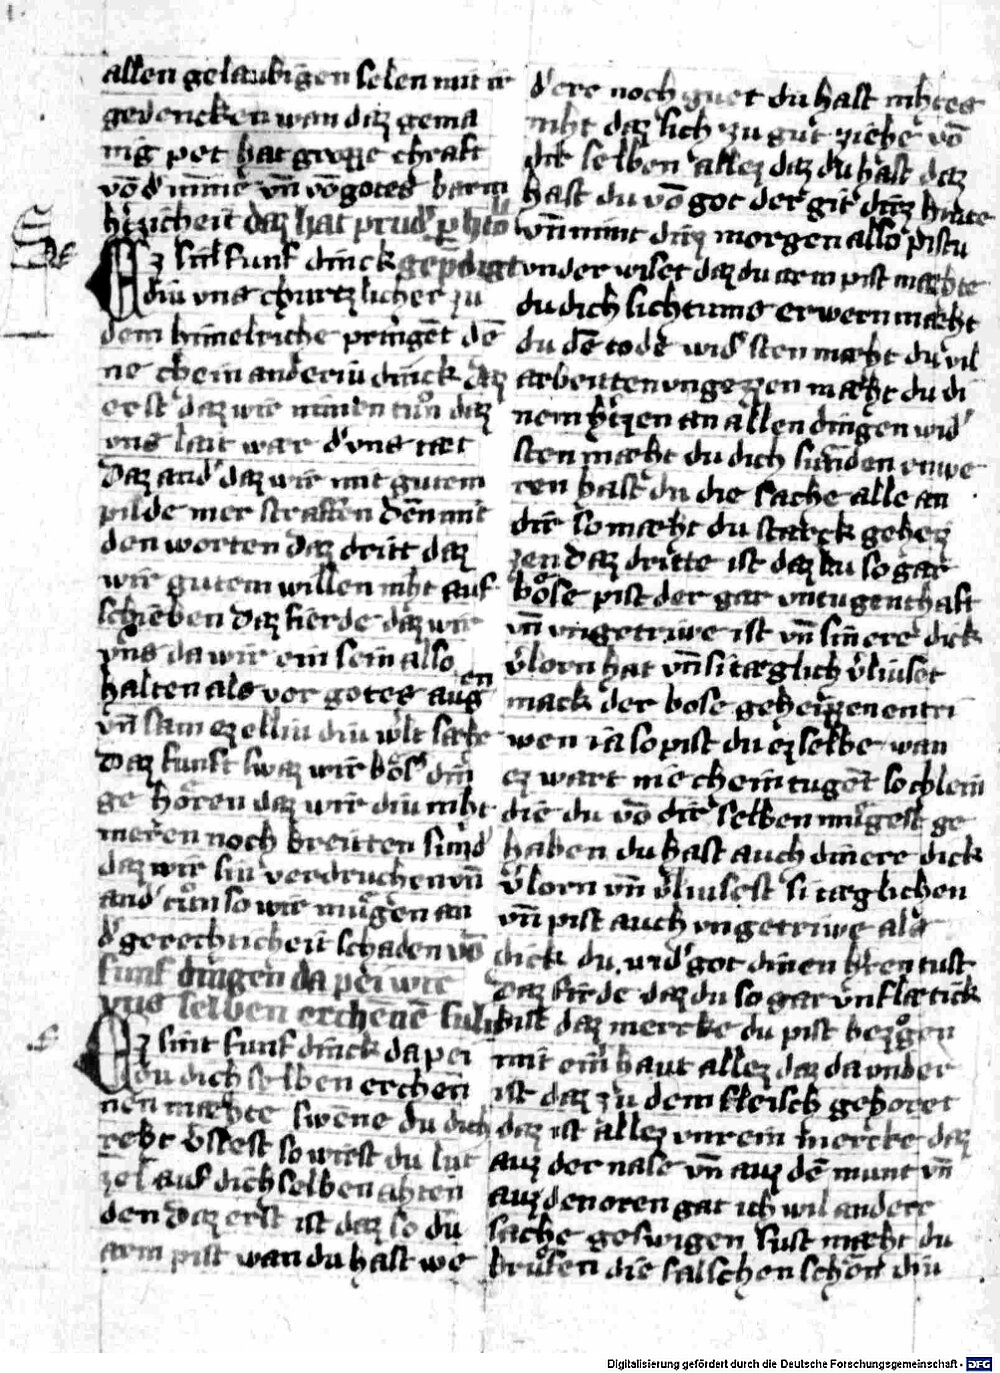 allen gelaubigen selen mit ir
gedencken wan daz gema
nig pet hat grozze chraft
võ d' mīne vñ võ gotes barm
h'tzicheit daz hat prud' p̄htolt
Ez sint funf dinck gepredigt
diu vns churtzlicher zu
dem himelriche pringēt dē
ne chein anderiu dinck daz
erst daz wir nimen tůn daz
vns lait wær d' vns tæt
Daz and' daz wir mit gutem
pilde mer straffen dēn mit
den worten Daz dritt daz
wir gutem willen niht auf
schieben Daz fierde daz wir
vns da wir ein sein also
halten als vor gotes augen
vñ sam ez elliu diu w'lt sæhe
Daz funft swaz wir bôs' din
ge hôren daz wir diu niht
meren noch breitten sund'
daz wir siu verdruchen vñ
and' tůn so wir mugen an
d' gerechticheit schaden võ
funf dingen da pei wir
vns selben erchēnē suln
Ez sint funf dinck da pei
du dich selben erchen
nen mæhte swēne du dich
reht v'stest so wirst du lut
zel auf dich selben ahten
den Daz erst ist daz so du
arm pist wan du hast we
d'ere noch guet du hast nihtes
niht daz sich zu gůt ziehe võ
dir selben allez daz du hast daz
hast du võ got der git dirz heute
vñ nimt dirz morgen also pistu
vnder wiset daz du arm pist mæhte
du dich siechtums erwern mæht
du dē tode wid'sten mæht du vil
arbeiten vngezzen mæht du di
nem h'tzen an allen dingen wid'
sten mæht du dich sunden erwe
ren hast du die sache alle an
dir so mæht du starck geheiz
zen Daz dritte ist daz du so gar
bôse pist der gar vntugenthaft
vñ vngetriwe ist vñ sin ere dick
v'lorn hat vñ si tæglich v'liuset
mack der bose geheizzen entri
wen ia so pist du ez selbe wan
ez wart nie chein tugēt so chlein
die du võ dir selben mugest ge
haben du hast auch din ere dick
v'lorn vñ v'liusest si tæglichen
vñ pist auch vngetriwe als
dick du wid' got dinen h'ren tust
Daz fierde daz du so gar vnflætick
bist daz mercke du pist bezogen
mit ein' haut allez daz da vnder
ist daz zu dem fleisch gehoret
daz ist allez vnrein mercke daz
auz der nase vñ auz dē munt vñ
auz den oren gat ich wil andere
sache geswigen sust mæht du
brufen die falschen schôn diu
Digitalisierung gefördert durch die Deutsche Forschungsgemeinschaft - DFG